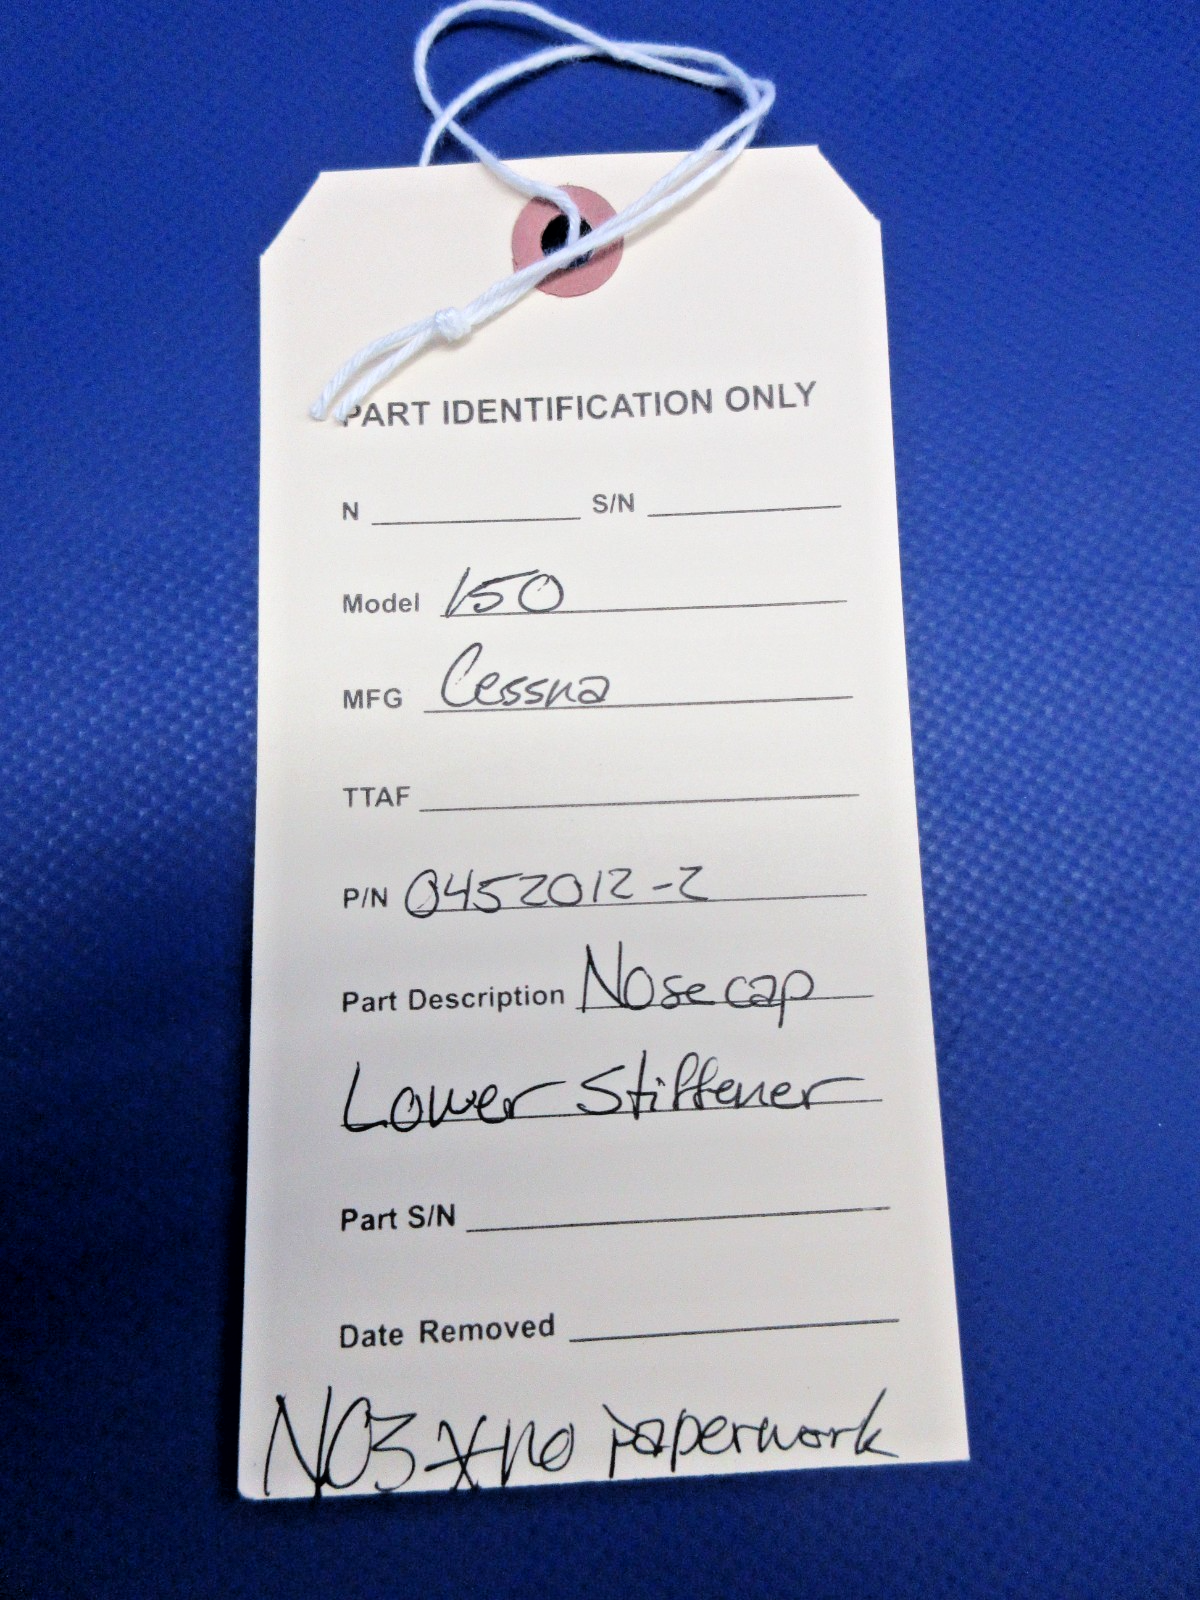 PART IDENTIFICATION ONLY
N S/N
Model 150
MFG Cessna
TTAF
P/N 0452012-2
Part Description Nose cap
Lower Stiffener
Part S/N
Date Removed
NO3 * no paperwork